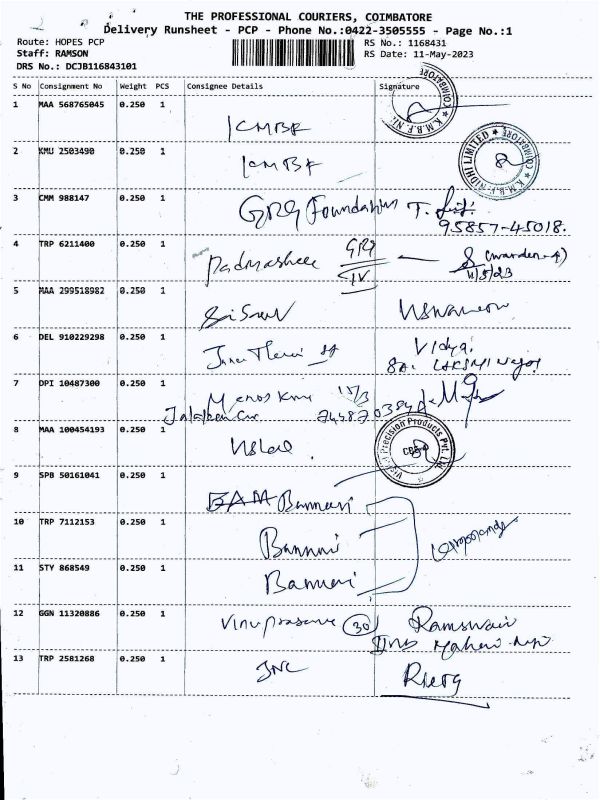 THE PROFESSIONAL COURIERS, COIMBATORE
Delivery Runsheet - PCP - Phone No.:0422-3505555 - Page No.:1
Route: HOPES PCP
Staff: RAMSON
DRS No.: DCJB116843101
RS No.: 1168431
RS Date: 11-May-2023
S No Consignment No Weight PCS Consignee Details Signature
1 MAA 568765045 0.250 1 KMBF
COIMBATORE ★ K.M.B.F. NI
2 KMU 2503490 0.250 1 KMBF
K.M.B.F. NIDHI LIMITED ★ COIMBATORE ★
3 CMM 988147 0.250 1 GRG Foundation T.
95857-45018.
4 TRP 6211400 0.250 1 Padmashree GRG IV (warden-4)
11/5/23
5 MAA 299518982 0.250 1
6 DEL 910229298 0.250 1 Vidya
7 DPI 10487300 0.250 1
8 MAA 100454193 0.250 1
Precision Products Pvt. Ltd.
9 SPB 50161041 0.250 1 Bannari
10 TRP 7112153 0.250 1 Bannari
11 STY 868549 0.250 1 Bannari
12 GGN 11320886 0.250 1 Vinuprasanna 30
13 TRP 2581268 0.250 1